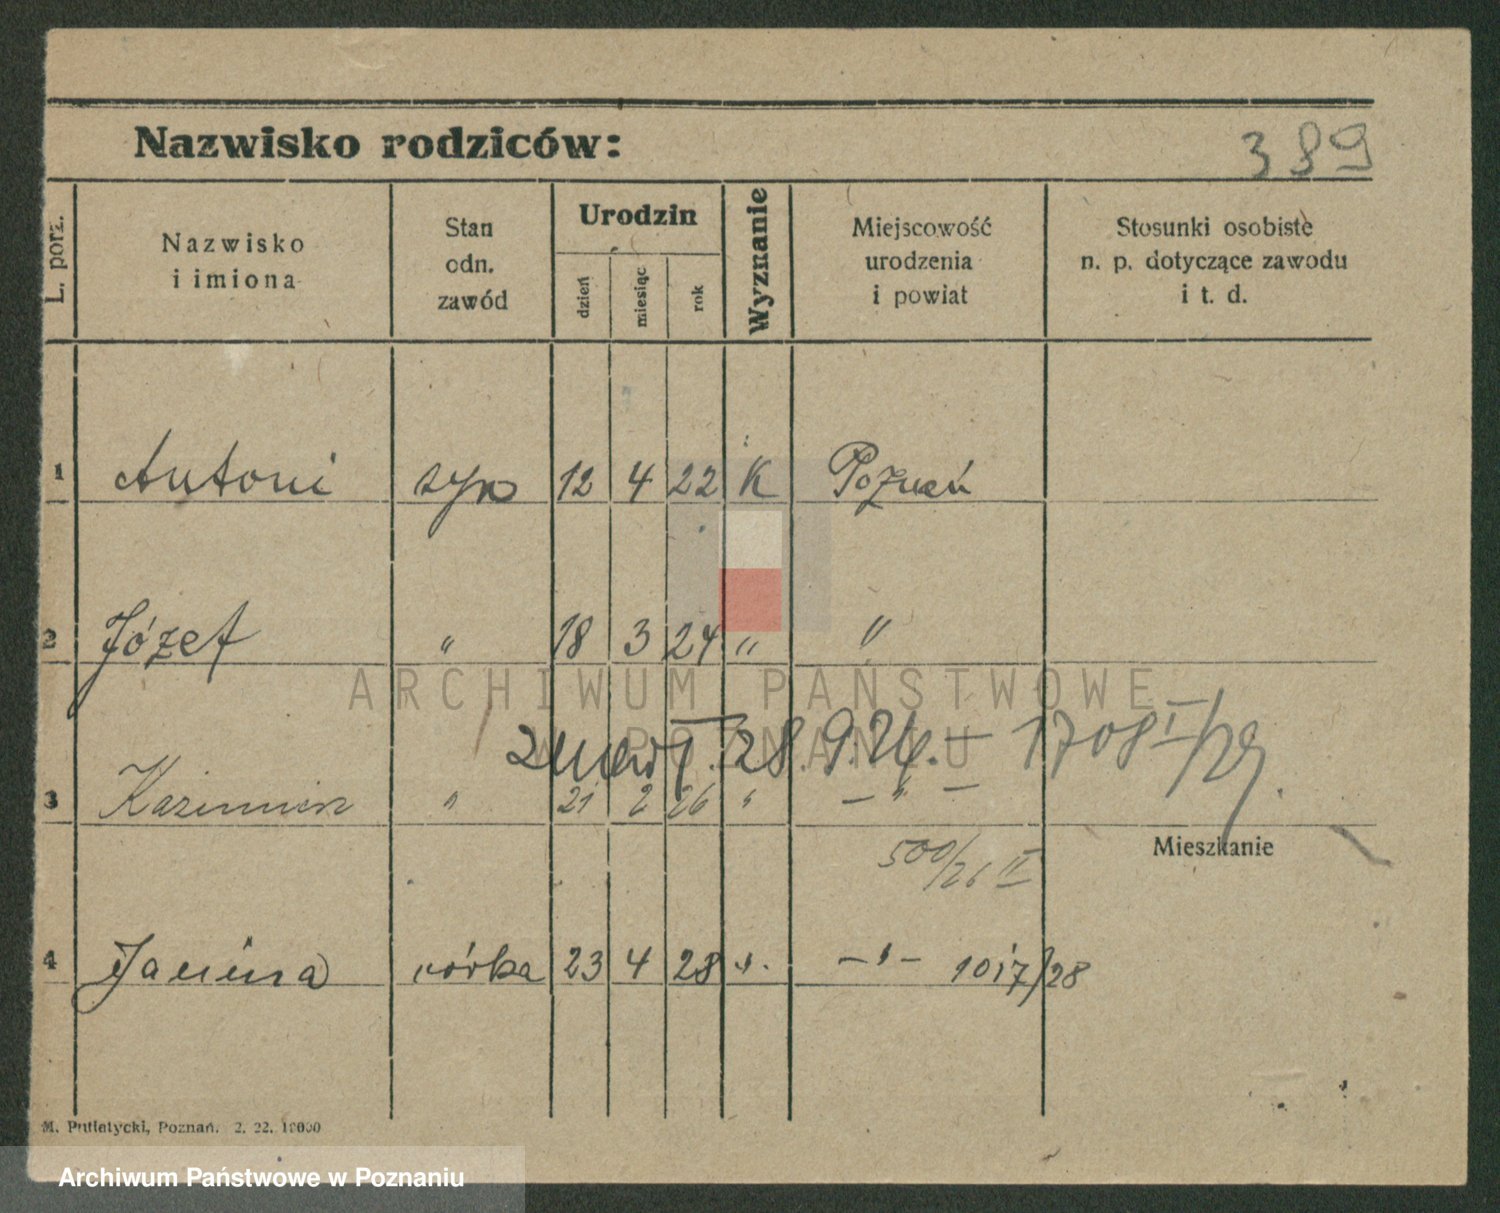 Nazwisko rodziców:
389
L. porz.
Nazwisko
i imiona
Stan
odn.
zawód
Urodzin
dzień
miesiąc
rok
Wyznanie
Miejscowość
urodzenia
i powiat
Stosunki osobiste
n. p. dotyczące zawodu
i t. d.
1 Antoni syn 12 4 22 K Poznań
2 Józef " 18 3 24 " "
28.9.24. — 1708 I/29.
3 Kazimierz " 21 2 26 " — " —
500/26 II
Mieszkanie
4 Janina córka 23 4 28 " — " — 1017/28
M. Putiatycki, Poznań. 2. 22. 10000
ARCHIWUM PAŃSTWOWE
W POZNANIU
Archiwum Państwowe w Poznaniu